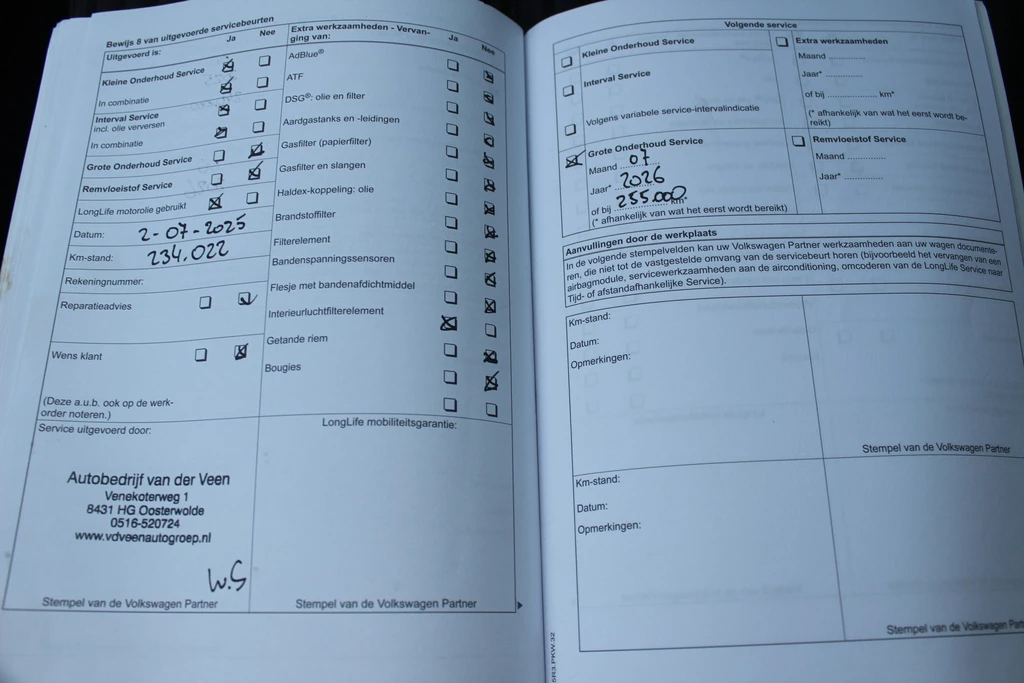 Bewijs 8 van uitgevoerde servicebeurten
Uitgevoerd is:
Ja
Nee
Kleine Onderhoud Service
In combinatie
Interval Service
incl. olie verversen
In combinatie
Grote Onderhoud Service
Remvloeistof Service
LongLife motorolie gebruikt
Datum: 2-07-2025
Km-stand: 234.022
Rekeningnummer:
Reparatieadvies
Wens klant
(Deze a.u.b. ook op de werk-
order noteren.)
Extra werkzaamheden - Vervan-
ging van:
Ja
Nee
AdBlue®
ATF
DSG®: olie en filter
Aardgastanks en -leidingen
Gasfilter (papierfilter)
Gasfilter en slangen
Haldex-koppeling: olie
Brandstoffilter
Filterelement
Bandenspanningssensoren
Flesje met bandenafdichtmiddel
Interieurluchtfilterelement
Getande riem
Bougies
Service uitgevoerd door:
Autobedrijf van der Veen
Venekoterweg 1
8431 HG Oosterwolde
0516-520724
www.vdveenautogroep.nl
W.S
Stempel van de Volkswagen Partner
LongLife mobiliteitsgarantie:
Stempel van de Volkswagen Partner
Volgende service
Kleine Onderhoud Service
Interval Service
Volgens variabele service-intervalindicatie
Grote Onderhoud Service
Maand ..07
Jaar* 2026
of bij 255.000 km*
(* afhankelijk van wat het eerst wordt bereikt)
Extra werkzaamheden
Maand ..............
Jaar* ..............
of bij .................... km*
(* afhankelijk van wat het eerst wordt be-
reikt)
Remvloeistof Service
Maand ..............
Jaar* ..............
Aanvullingen door de werkplaats
In de volgende stempelvelden kan uw Volkswagen Partner werkzaamheden aan uw wagen documente-
ren, die niet tot de vastgestelde omvang van de servicebeurt horen (bijvoorbeeld het vervangen van een
airbagmodule, servicewerkzaamheden aan de airconditioning, omcoderen van de LongLife Service naar
Tijd- of afstandafhankelijke Service).
Km-stand:
Datum:
Opmerkingen:
Stempel van de Volkswagen Partner
Km-stand:
Datum:
Opmerkingen:
Stempel van de Volkswagen Part